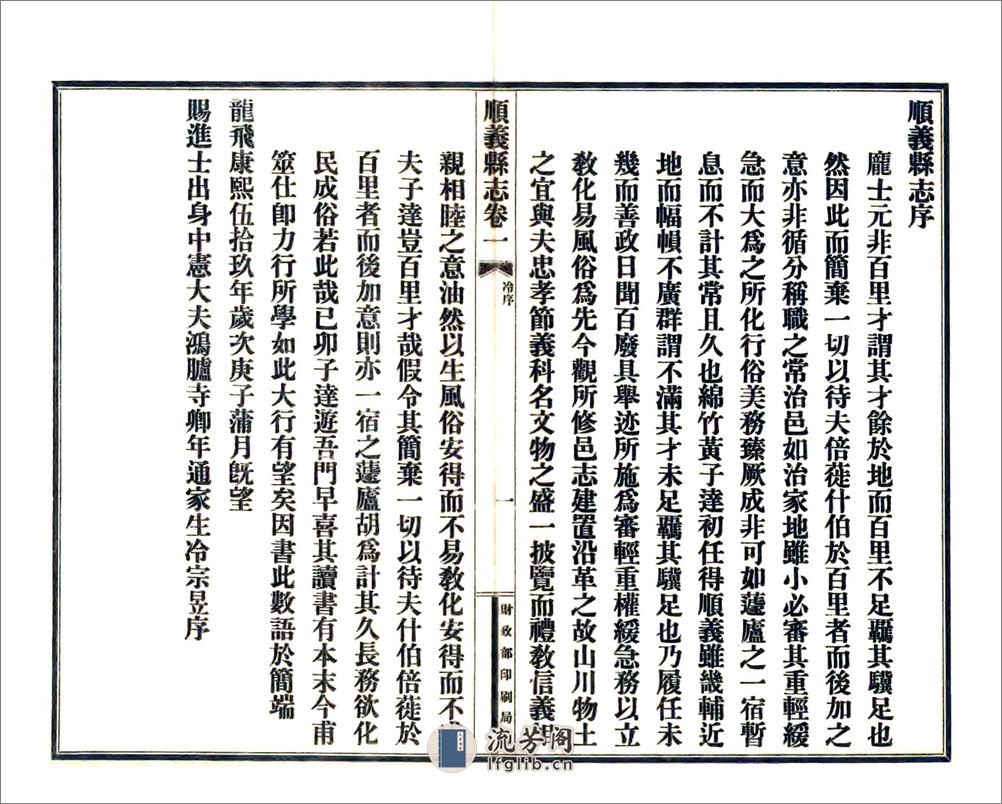 順義縣志序
龐士元非百里才謂其才餘於地而百里不足覊其驥足也
然因此而簡棄一切以待夫倍蓰什伯於百里者而後加之
意亦非循分稱職之常治邑如治家地雖小必審其重輕緩
急而大爲之所化行俗美務臻厥成非可如蘧廬之一宿暫
息而不計其常且久也綿竹黃子達初任得順義雖畿輔近
地而幅幀不廣群謂不滿其才未足覊其驥足也乃履任未
幾而善政日聞百廢具舉迹所施爲審輕重權緩急務以立
敎化易風俗爲先今觀所修邑志建置沿革之故山川物土
之宜與夫忠孝節義科名文物之盛一披覽而禮敎信義
順義縣志卷一
冷序
一
財政部印刷局
親相睦之意油然以生風俗安得而不易敎化安得而不
夫子達豈百里才哉假令其簡棄一切以待夫什伯倍蓰於
百里者而後加意則亦一宿之蘧廬胡爲計其久長務欲化
民成俗若此哉已卯子達遊吾門早喜其讀書有本末今甫
筮仕卽力行所學如此大行有望矣因書此數語於簡端
龍飛康熙伍拾玖年歲次庚子蒲月旣望
賜進士出身中憲大夫鴻臚寺卿年通家生冷宗昱序
流芳閣
lfglib.cn